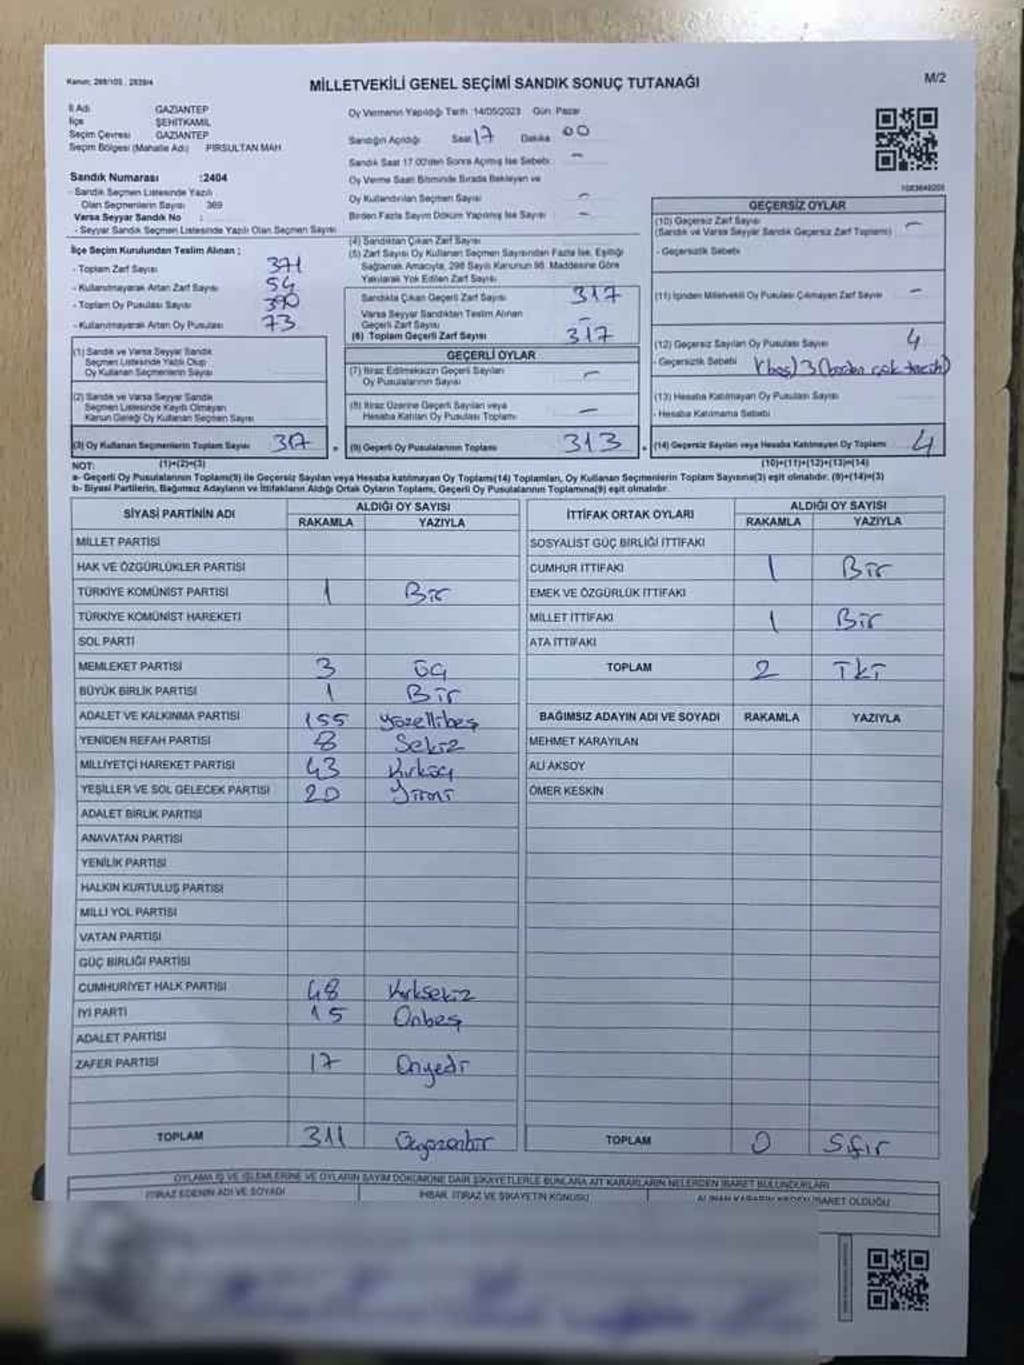 Kanun: 298/105 , 2839/4
MİLLETVEKİLİ GENEL SEÇİMİ SANDIK SONUÇ TUTANAĞI
M/2
İl Adı GAZİANTEP
İlçe ŞEHİTKAMİL
Seçim Çevresi GAZİANTEP
Seçim Bölgesi (Mahalle Adı) PIRSULTAN MAH
Sandık Numarası :2404
- Sandık Seçmen Listesinde Yazılı
Olan Seçmenlerin Sayısı 369
Varsa Seyyar Sandık No :
- Seyyar Sandık Seçmen Listesinde Yazılı Olan Seçmen Sayısı
Oy Vermenin Yapıldığı Tarih :14/05/2023 Gün: Pazar
Sandığın Açıldığı Saat 17 Dakika 00
Sandık Saat 17.00'den Sonra Açılmış İse Sebebi: -
Oy Verme Saati Bitiminde Sırada Bekleyen ve
Oy Kullandırılan Seçmen Sayısı -
Birden Fazla Sayım Döküm Yapılmış İse Sayısı -
İlçe Seçim Kurulundan Teslim Alınan ;
- Toplam Zarf Sayısı 371
- Kullanılmayarak Artan Zarf Sayısı 54
- Toplam Oy Pusulası Sayısı 390
- Kullanılmayarak Artan Oy Pusulası 73
(1) Sandık ve Varsa Seyyar Sandık
Seçmen Listesinde Yazılı Olup
Oy Kullanan Seçmenlerin Sayısı
(2) Sandık ve Varsa Seyyar Sandık
Seçmen Listesinde Kayıtlı Olmayan
Kanun Gereği Oy Kullanan Seçmen Sayısı
(3) Oy Kullanan Seçmenlerin Toplam Sayısı 317
(1)+(2)=(3)
(4) Sandıktan Çıkan Zarf Sayısı
(5) Zarf Sayısı Oy Kullanan Seçmen Sayısından Fazla İse, Eşitliği
Sağlamak Amacıyla, 298 Sayılı Kanunun 98. Maddesine Göre
Yakılarak Yok Edilen Zarf Sayısı
Sandıkta Çıkan Geçerli Zarf Sayısı 317
Varsa Seyyar Sandıktan Teslim Alınan
Geçerli Zarf Sayısı -
(6) Toplam Geçerli Zarf Sayısı 317
GEÇERLİ OYLAR
(7) İtiraz Edilmeksizin Geçerli Sayılan
Oy Pusulalarının Sayısı -
(8) İtiraz Üzerine Geçerli Sayılan veya
Hesaba Katılan Oy Pusulaları Toplamı -
(9) Geçerli Oy Pusulalarının Toplamı 313
1083649205
GEÇERSİZ OYLAR
(10) Geçersiz Zarf Sayısı -
(Sandık ve Varsa Seyyar Sandık Geçersiz Zarf Toplamı)
- Geçersizlik Sebebi
(11) İçinden Milletvekili Oy Pusulası Çıkmayan Zarf Sayısı -
(12) Geçersiz Sayılan Oy Pusulası Sayısı 4
- Geçersizlik Sebebi 1(boş) 3(birden çok tercih)
(13) Hesaba Katılmayan Oy Pusulası Sayısı
- Hesaba Katılmama Sebebi
(14) Geçersiz Sayılan veya Hesaba Katılmayan Oy Toplamı 4
(10)+(11)+(12)+(13)=(14)
NOT:
a- Geçerli Oy Pusulalarının Toplamı(9) ile Geçersiz Sayılan veya Hesaba katılmayan Oy Toplamı(14) Toplamları, Oy Kullanan Seçmenlerin Toplam Sayısına(3) eşit olmalıdır. (9)+(14)=(3)
b- Siyasi Partilerin, Bağımsız Adayların ve İttifakların Aldığı Ortak Oyların Toplamı, Geçerli Oy Pusulalarının Toplamına(9) eşit olmalıdır.
SİYASİ PARTİNİN ADI ALDIĞI OY SAYISI
RAKAMLA YAZIYLA
MİLLET PARTİSİ
HAK VE ÖZGÜRLÜKLER PARTİSİ
TÜRKİYE KOMÜNİST PARTİSİ 1 Bir
TÜRKİYE KOMÜNİST HAREKETİ
SOL PARTİ
MEMLEKET PARTİSİ 3 üç
BÜYÜK BİRLİK PARTİSİ 1 Bir
ADALET VE KALKINMA PARTİSİ 155 yüzellibeş
YENİDEN REFAH PARTİSİ 8 Sekiz
MİLLİYETÇİ HAREKET PARTİSİ 43 Kırküç
YEŞİLLER VE SOL GELECEK PARTİSİ 20 Yirmi
ADALET BİRLİK PARTİSİ
ANAVATAN PARTİSİ
YENİLİK PARTİSİ
HALKIN KURTULUŞ PARTİSİ
MİLLİ YOL PARTİSİ
VATAN PARTİSİ
GÜÇ BİRLİĞİ PARTİSİ
CUMHURİYET HALK PARTİSİ 48 Kırksekiz
İYİ PARTİ 15 Onbeş
ADALET PARTİSİ
ZAFER PARTİSİ 17 Onyedi
TOPLAM 311 Üçyüzonbir
İTTİFAK ORTAK OYLARI ALDIĞI OY SAYISI
RAKAMLA YAZIYLA
SOSYALİST GÜÇ BİRLİĞİ İTTİFAKI
CUMHUR İTTİFAKI 1 Bir
EMEK VE ÖZGÜRLÜK İTTİFAKI
MİLLET İTTİFAKI 1 Bir
ATA İTTİFAKI
TOPLAM 2 İki
BAĞIMSIZ ADAYIN ADI VE SOYADI RAKAMLA YAZIYLA
MEHMET KARAYILAN
ALİ AKSOY
ÖMER KESKİN
TOPLAM 0 Sıfır
OYLAMA İŞ VE İŞLEMLERİNE VE OYLARIN SAYIM DÖKÜMÜNE DAİR ŞİKAYETLERLE BUNLARA AİT KARARLARIN NELERDEN İBARET BULUNDUKLARI
İTİRAZ EDENİN ADI VE SOYADI İHBAR, İTİRAZ VE ŞİKAYETİN KONUSU ALINAN KARARIN NEDEN İBARET OLDUĞU